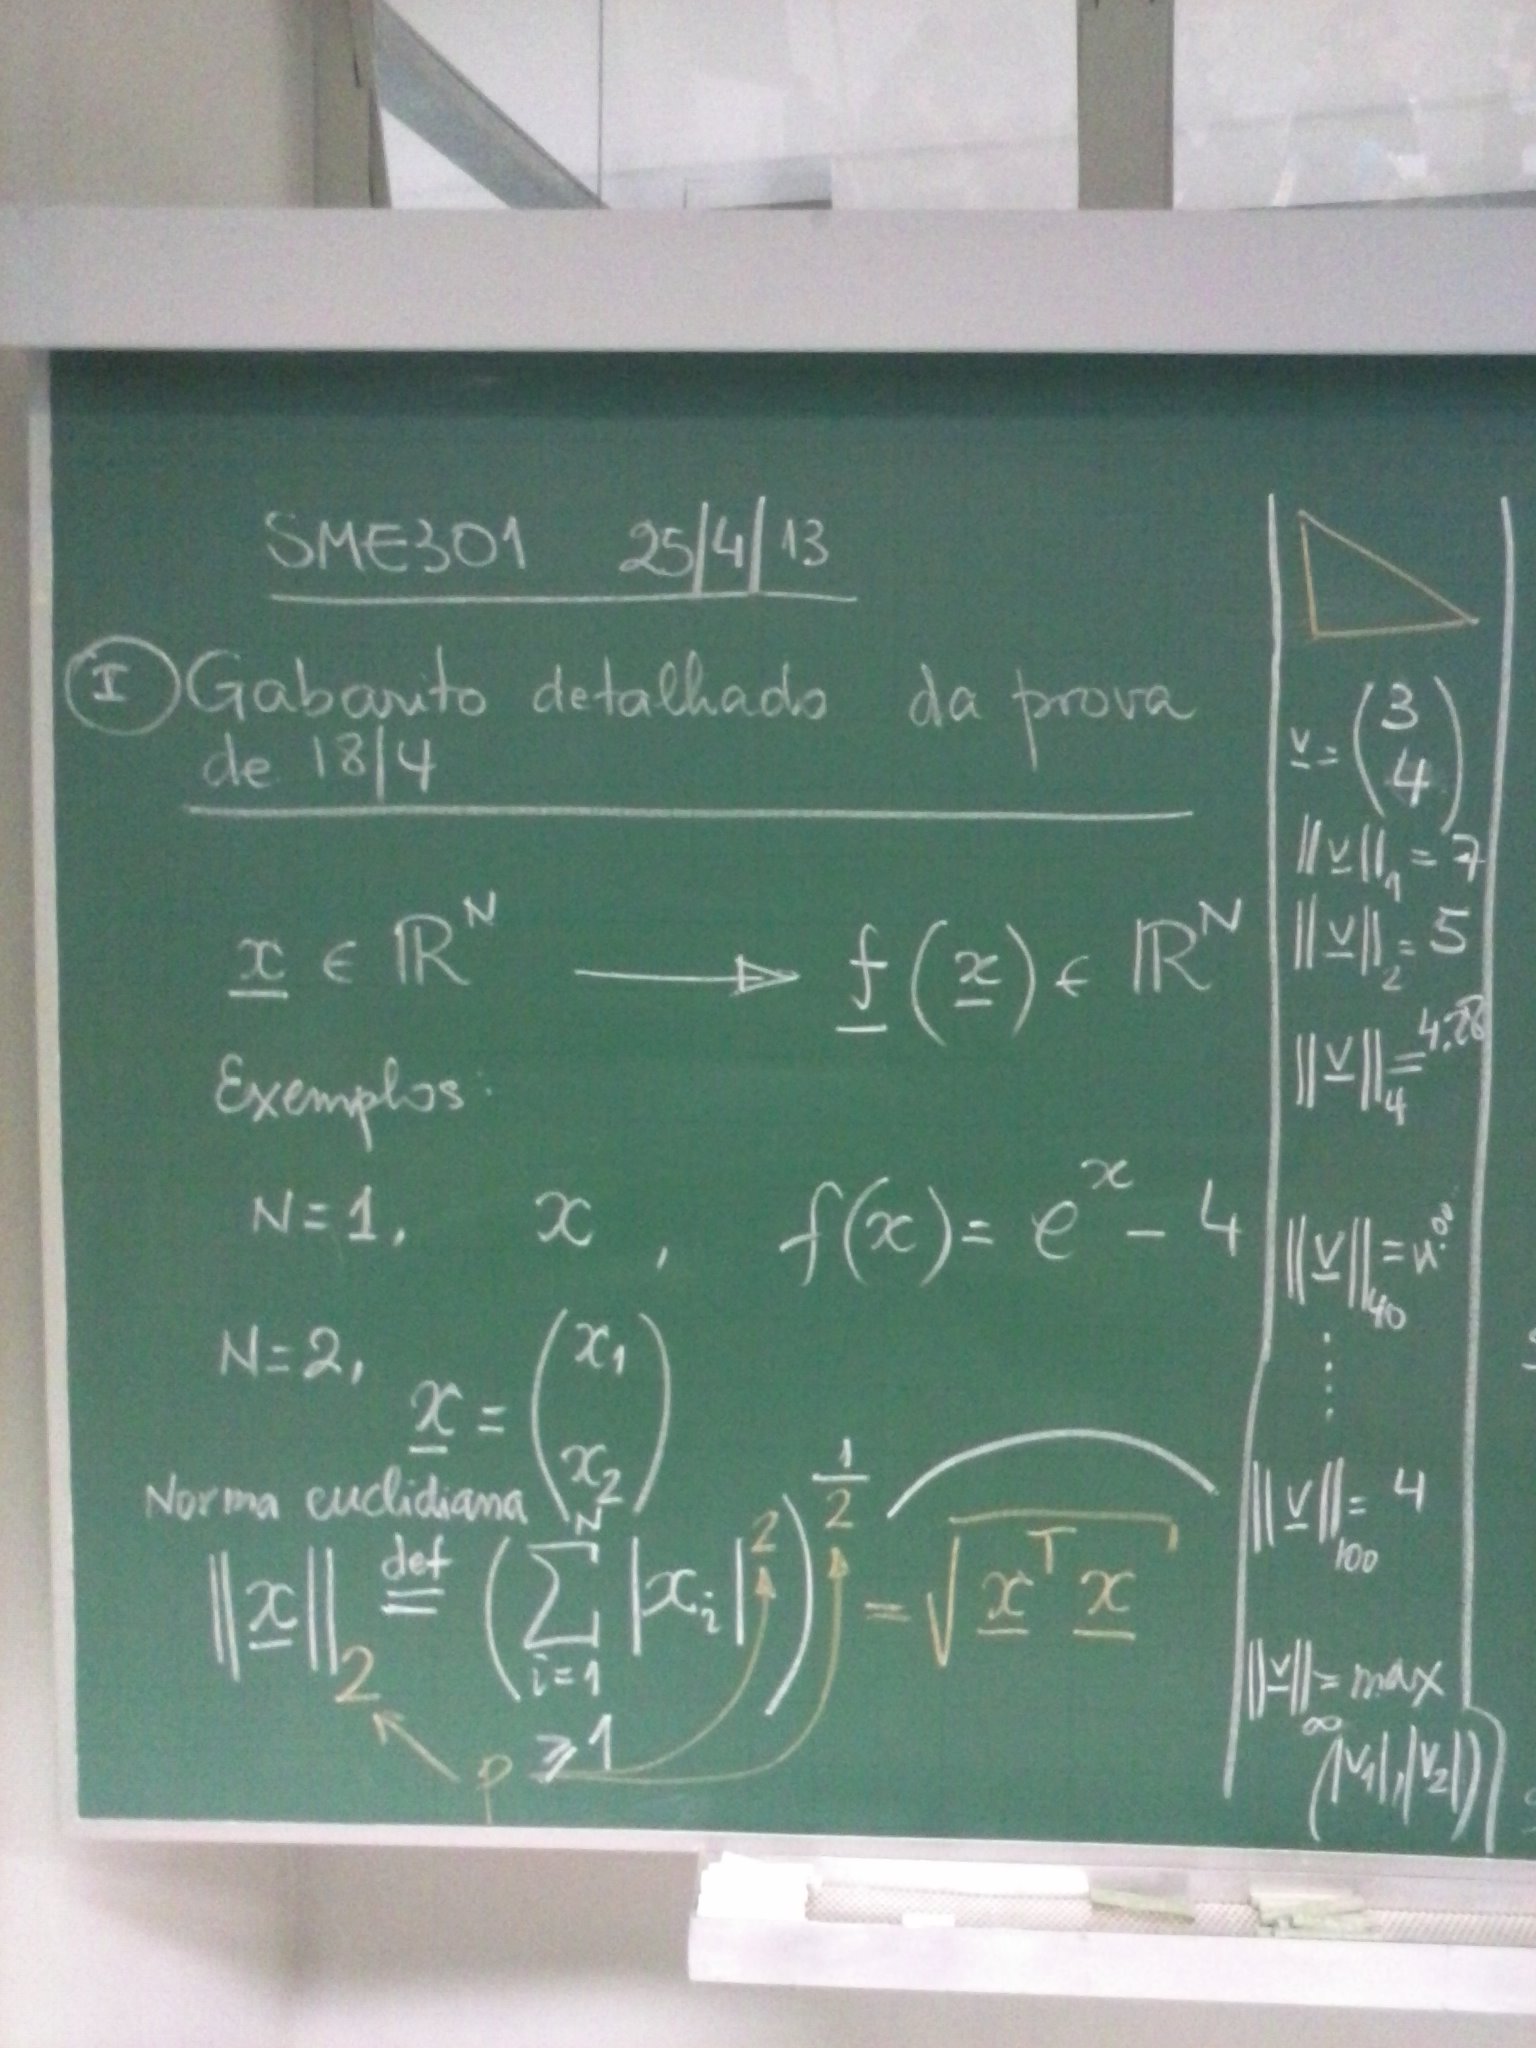 SME301 25/4/13
I Gabarito detalhado da prova
de 18/4
x ∈ ℝ^N → f(x) ∈ ℝ^N
Exemplos:
N=1, x , f(x) = e^x - 4
N=2, x = (x_1
x_2)
Norma euclidiana
||x||_2 def= (∑_{i=1}^{N} |x_i|^2)^{1/2} = √(x^T x)
p ≥ 1
v = (3
4)
||v||_1 = 7
||v||_2 = 5
||v||_4 = 4.28
||v||_40 =
⋮
||v||_100 = 4
||v||_∞ = max
(|v_1|, |v_2|)